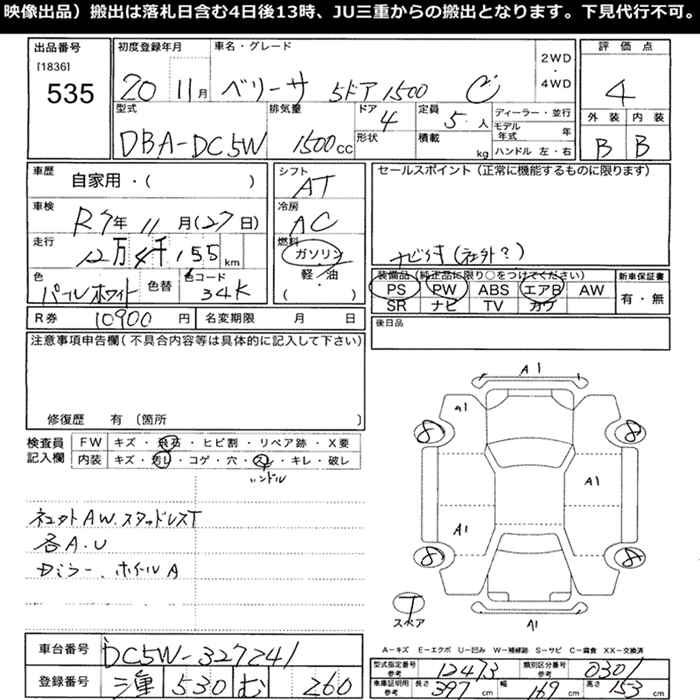 映像出品）搬出は落札日含む4日後13時、JU三重からの搬出となります。下見代行不可。
出品番号
[1836]
535
初度登録年月
20 11月
車名・グレード
ベリーサ 5ドア1500 C
2WD
・
4WD
評価点
4
外装 内装
B B
型式
DBA-DC5W
排気量
1500cc
ドア
4
形状
定員
5人
積載
kg
ディーラー・並行
モデル年式 年
ハンドル 左・右
車歴
自家用・( )
車検
R7年 11月(27日)
走行
12万4千155km
色
パールホワイト
色替
色コード
34K
シフト
AT
冷房
AC
燃料
ガソリン
軽・油
( )
セールスポイント（正常に機能するものに限ります）
ナビ付(社外?)
装備品（純正品に限り○をつけてください）
PS PW ABS エアB AW
SR ナビ TV カワ
新車保証書
有・無
R券 10900円
名変期限 月 日
後日品
注意事項申告欄(不具合内容等は具体的に記入して下さい)
修復歴 有〔箇所 〕
検査員
記入欄
FW キズ・飛石・ヒビ割・リペア跡・X要
内装 キズ・汚レ・コゲ・穴・スレ・キレ・破レ
ハンドル
AW.スタッドレスT
各A.U
ホイールA
A1
A1
8 8
A1
A1
8 8
T
スペア
A1
A−キズ E−エクボ U−凹み W−補修跡 S−サビ C−腐食 XX−交換済
車台番号
DC5W-327241
登録番号
三重 530 む 260
型式指定番号
参考
12473
類別区分番号
参考
0301
車庫証明用
参考
長さ 397cm
幅 169cm
高さ 153cm